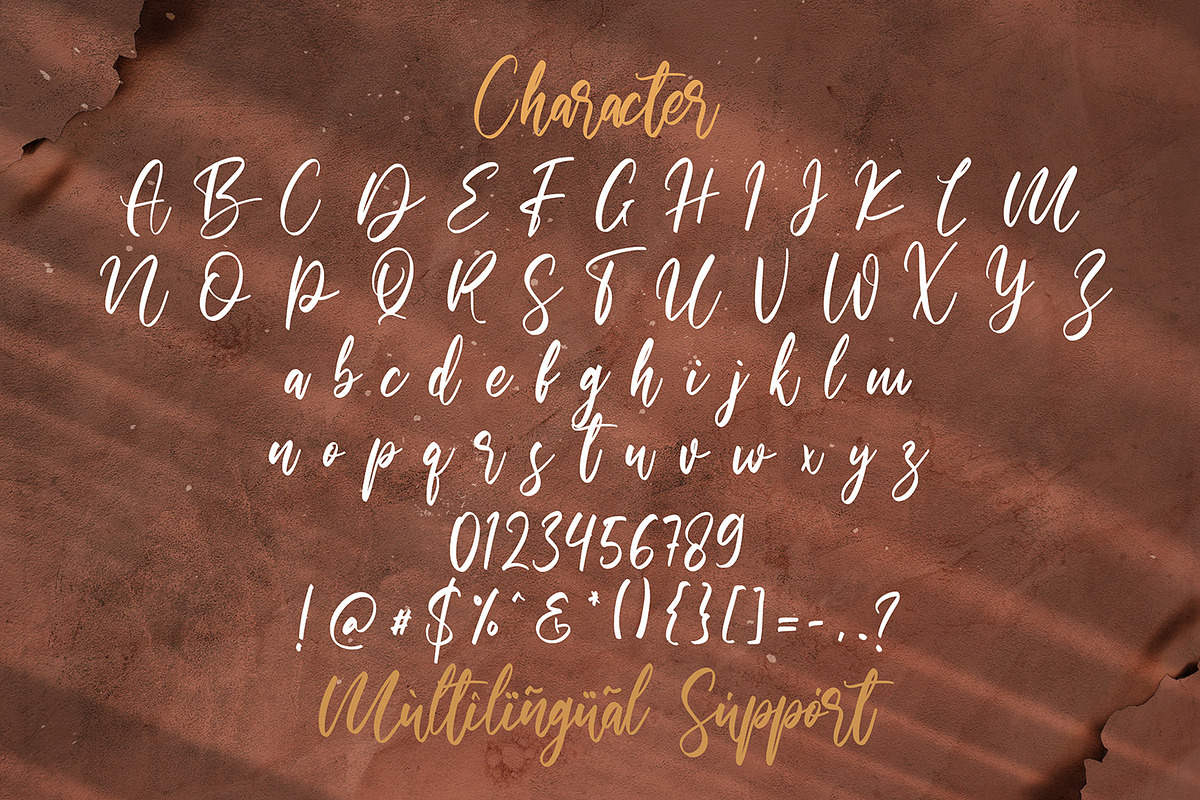 Character
A B C D E F G H I J K L M
N O P Q R S T U V W X Y Z
a b c d e f g h i j k l m
n o p q r s t u v w x y z
0123456789
! @ # $ % ^ & * ( ) { } [ ] = - , . ?
Mùltïlïñgüãl Súppórt